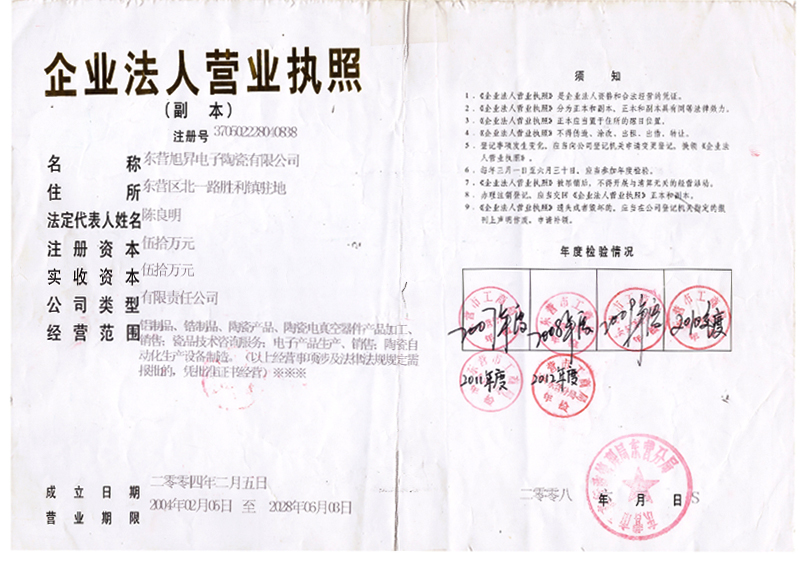 企业法人营业执照
（副 本）
注册号 370502228040838
名 称 东营旭昇电子陶瓷有限公司
住 所 东营区北一路胜利镇驻地
法定代表人姓名 陈良明
注 册 资 本 伍拾万元
实 收 资 本 伍拾万元
公 司 类 型 有限责任公司
经 营 范 围 铝制品、锆制品、陶瓷产品、陶瓷电真空器件产品加工、
销售；瓷品技术咨询服务；电子产品生产、销售；陶瓷自
动化生产设备制造。（以上经营事项涉及法律法规规定需
报批的，凭批准证书经营）※※※
成 立 日 期 二零零四年二月五日
营 业 期 限 2004年02月05日 至 2028年06月03日
须 知
1．《企业法人营业执照》是企业法人资格和合法经营的凭证。
2．《企业法人营业执照》分为正本和副本，正本和副本具有同等法律效力。
3．《企业法人营业执照》正本应当置于住所的醒目位置。
4．《企业法人营业执照》不得伪造、涂改、出租、出借、转让。
5．登记事项发生变化，应当向公司登记机关申请变更登记，换领《企业法
人营业执照》。
6．每年三月一日至六月三十日，应当参加年度检验。
7．《企业法人营业执照》被吊销后，不得开展与清算无关的经营活动。
8．办理注销登记，应当交回《企业法人营业执照》正本和副本。
9．《企业法人营业执照》遗失或者毁坏的，应当在公司登记机关指定的报
刊上声明作废，申请补领。
年度检验情况
2007年度 2008年度 2009年度 2010年度
2011年度 2012年度
二零零八 年 月 日